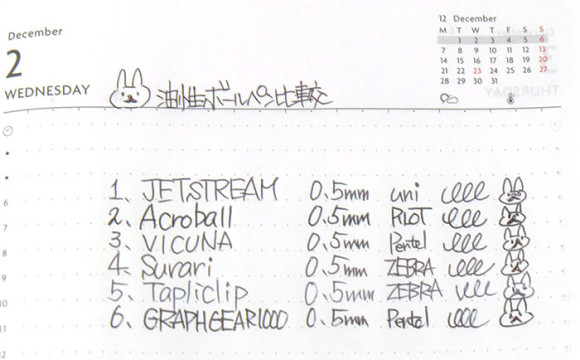 December
2
WEDNESDAY
12 December
M T W T F S S
1 2 3 4 5 6
7 8 9 10 11 12 13
14 15 16 17 18 19 20
21 22 23 24 25 26 27
28 29 30 31
油性ボールペン比較
1. JETSTREAM 0.5mm uni
6
2. Acroball 0.5mm PILOT
7
3. VICUNA 0.5mm Pentel
8
4. Surari 0.5mm ZEBRA
9
5. Tapliclip 0.5mm ZEBRA
10
6. GRAPHGEAR1000 0.5mm Pentel
11
12